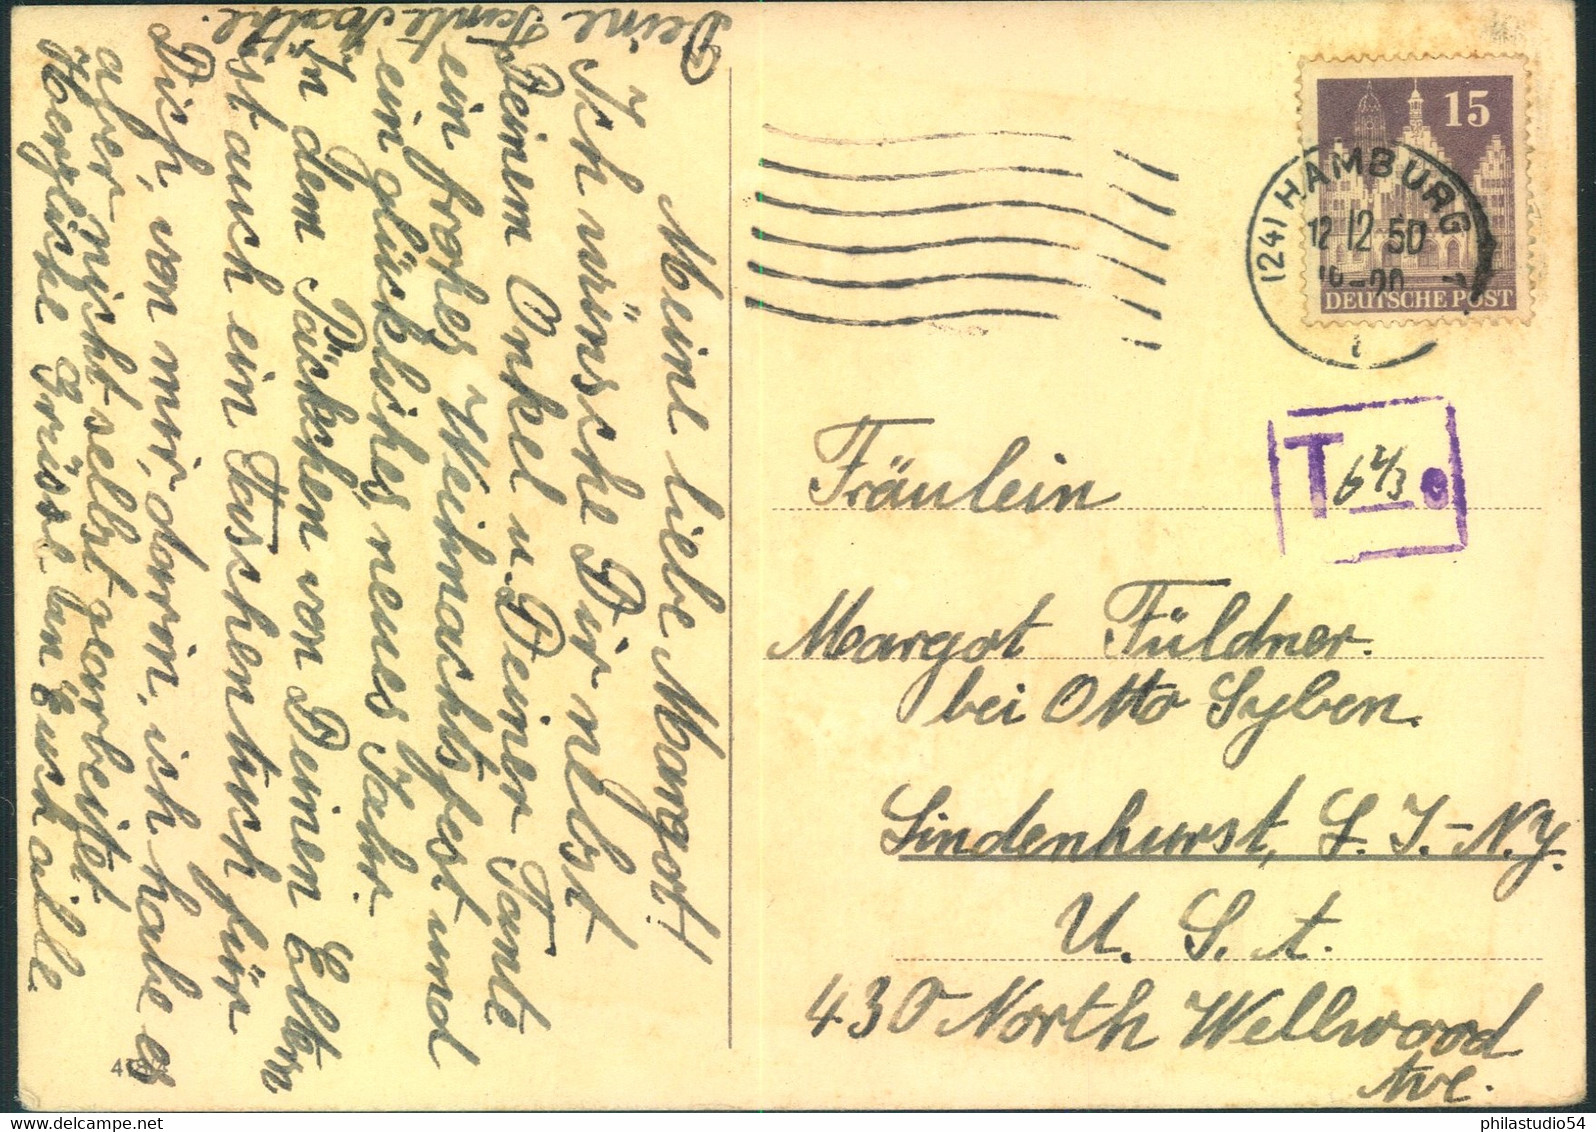 Meine liebe Margot!
Ich wünsche Dir nebst
Deinem Onkel u. Deiner Tante
ein frohes Weihnachtsfest und
ein glückliches neues Jahr.
In dem Päckchen von Deinen Eltern
ist auch ein Taschentuch für
Dich, von mir, darin, ich habe es
aber nicht selbst gearbeitet.
Herzliche Grüsse an Euch alle
Deine Tante
4
15
DEUTSCHE POST
(24) HAMBURG
12 12 50
1
T 6 2/3 c
Fräulein
Margot Füldner.
bei Otto Syben.
Lindenhurst, L. I. - N.Y.
U. S. A.
430 North Wellwood
Ave.
philastudio54